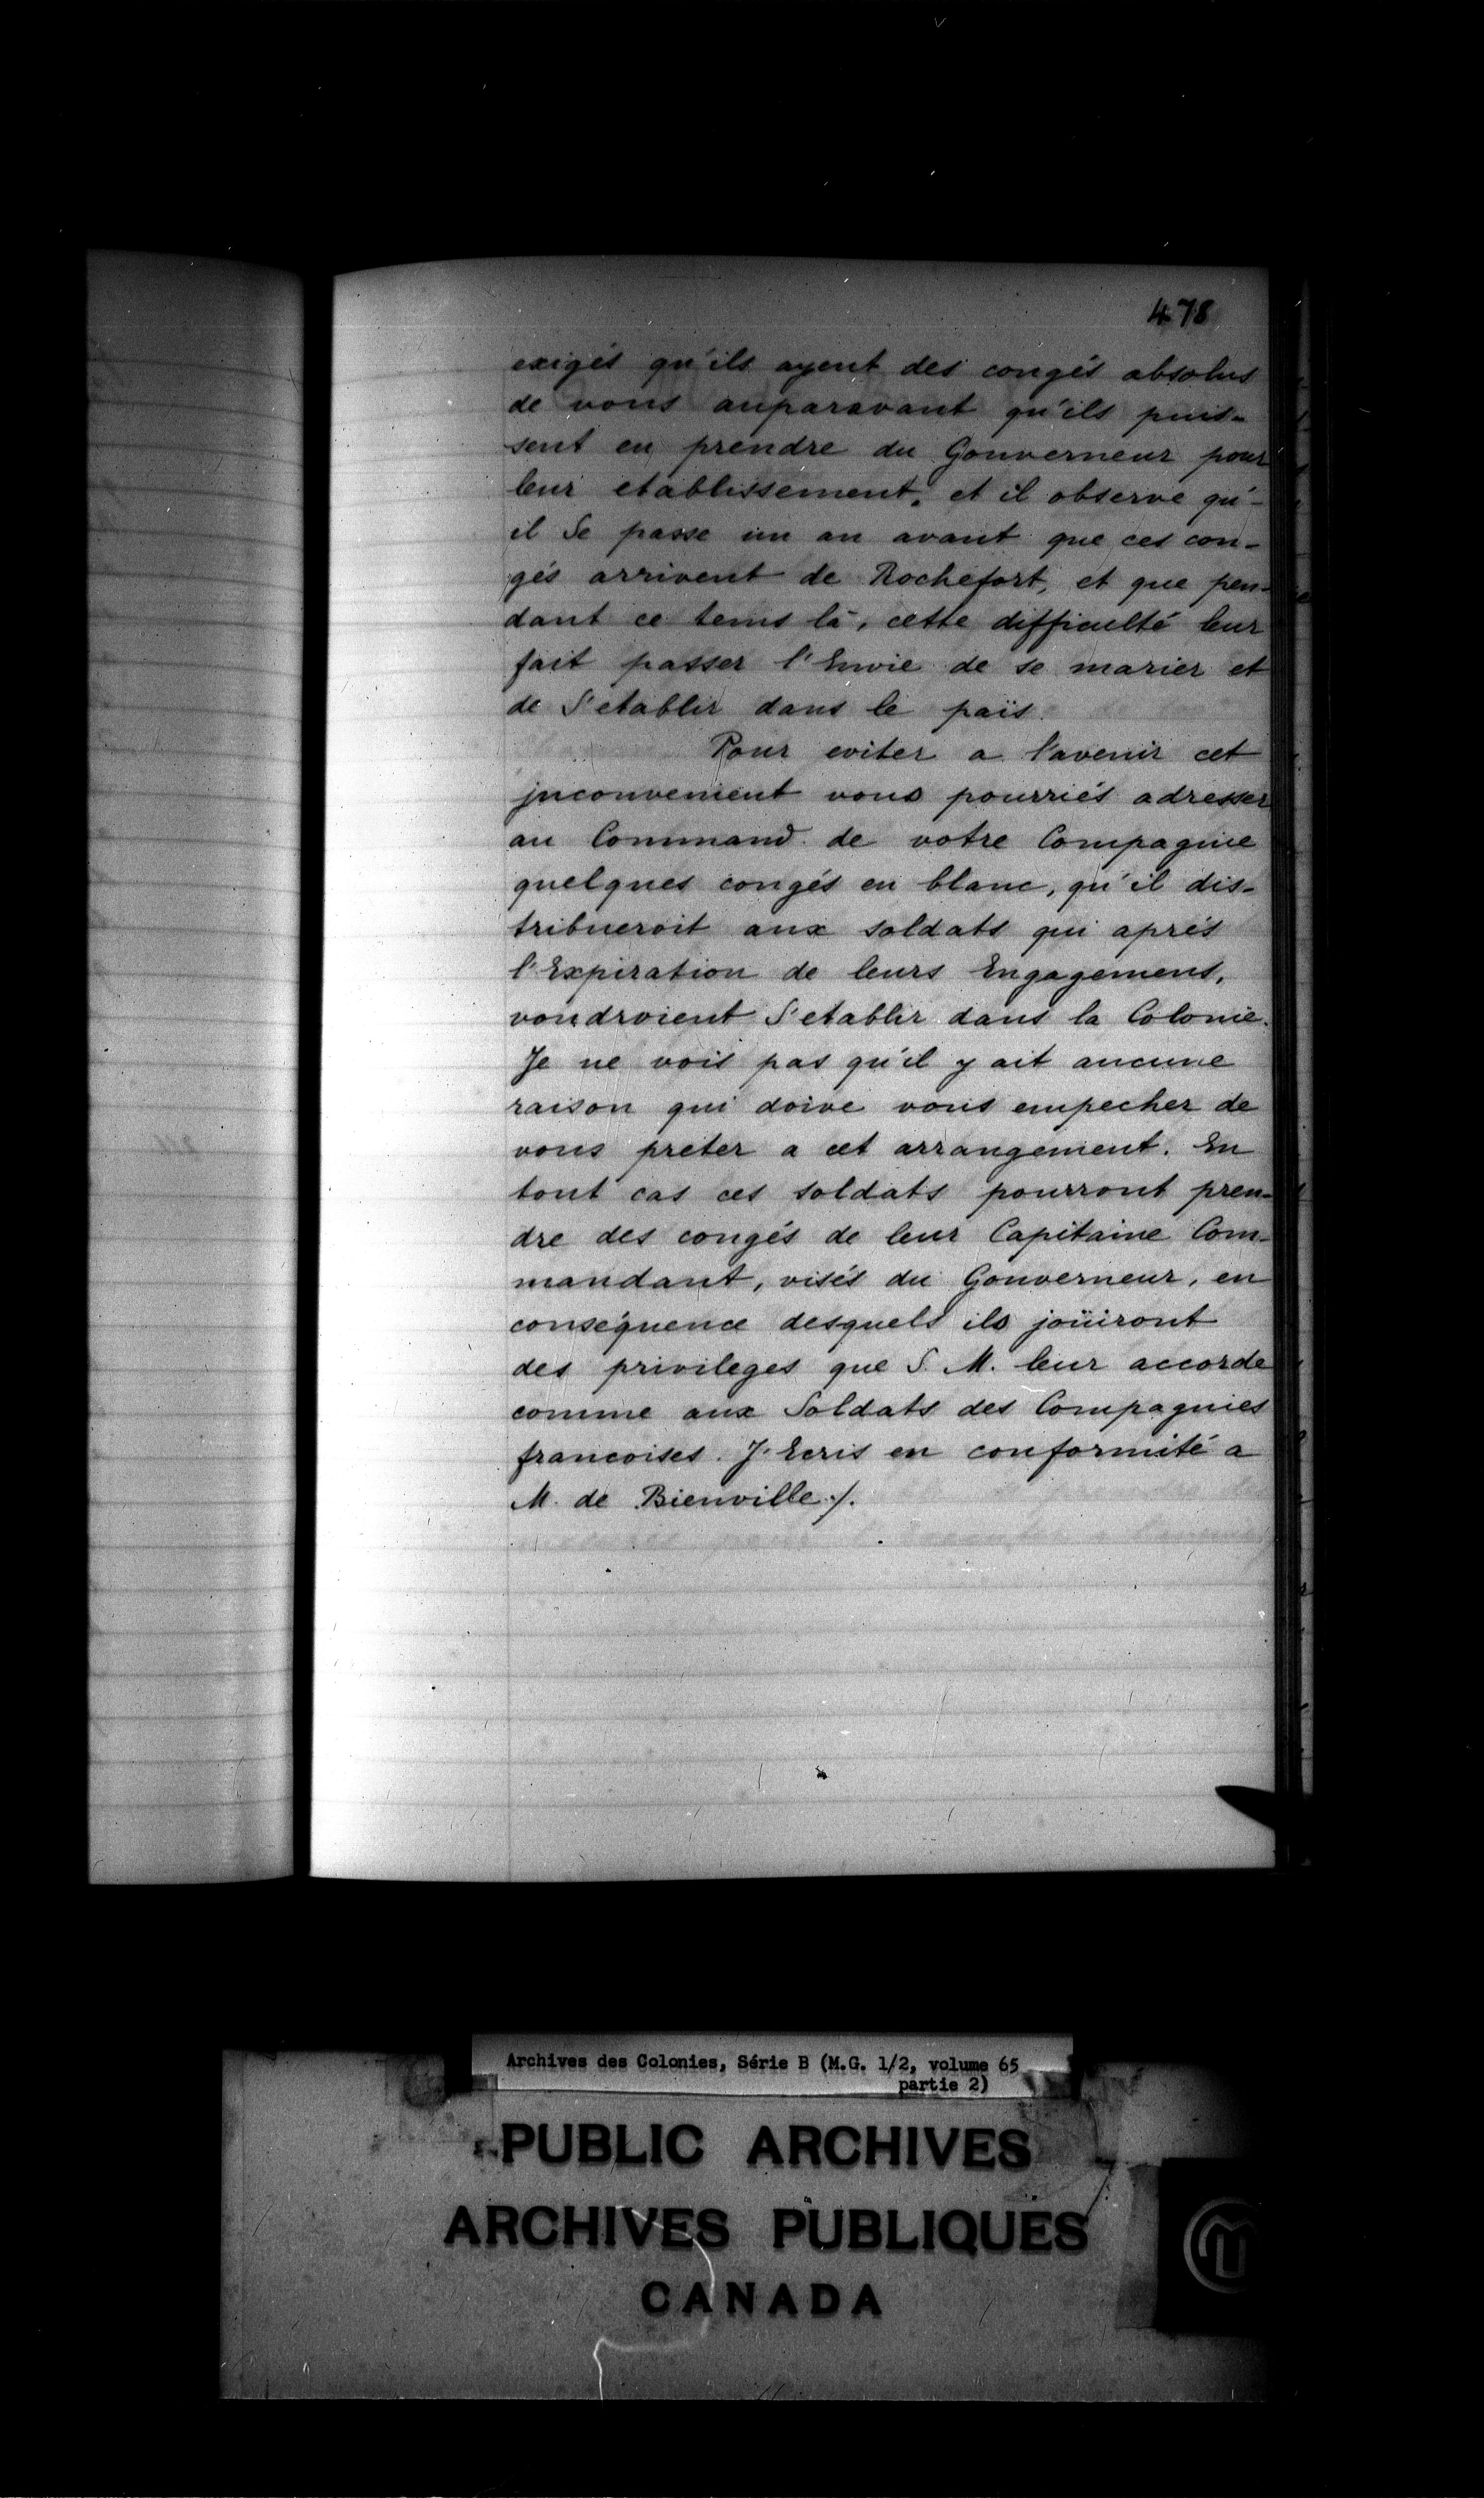 478
exigés qu'ils ayent des congés absolus
de vous auparavant qu'ils puis-
sent en prendre du Gouverneur pour
leur etablissement, et il observe qu'-
il Se passe un an avant que ces con-
gés arrivent de Rochefort, et que pen-
dant ce tems là, cette difficulté leur
fait passer l'Envie de se marier et
de S'etablir dans le païs.
Pour eviter a l'avenir cet
jnconvenient vous pourriés adresser
au Command. de votre Compagnie
quelques congés en blanc, qu'il dis-
tribueroit aux soldats qui aprés
l'Expiration de leurs Engagemens,
voudroient S'etablir dans la Colonie.
Je ne vois pas qu'il y ait aucune
raison qui doive vous empecher de
vous preter a cet arrangement. En
tout cas ces soldats pourront pren-
dre des congés de leur Capitaine Com-
mandant, visés du Gouverneur, en
conséquence desquels ils joüiront
des privileges que S. M. leur accorde
comme aux Soldats des Compagnies
francoises. J'Ecris en conformité a
M. de Bienville ./.
Archives des Colonies, Série B (M.G. 1/2, volume 65
partie 2)
PUBLIC ARCHIVES
ARCHIVES PUBLIQUES
CANADA